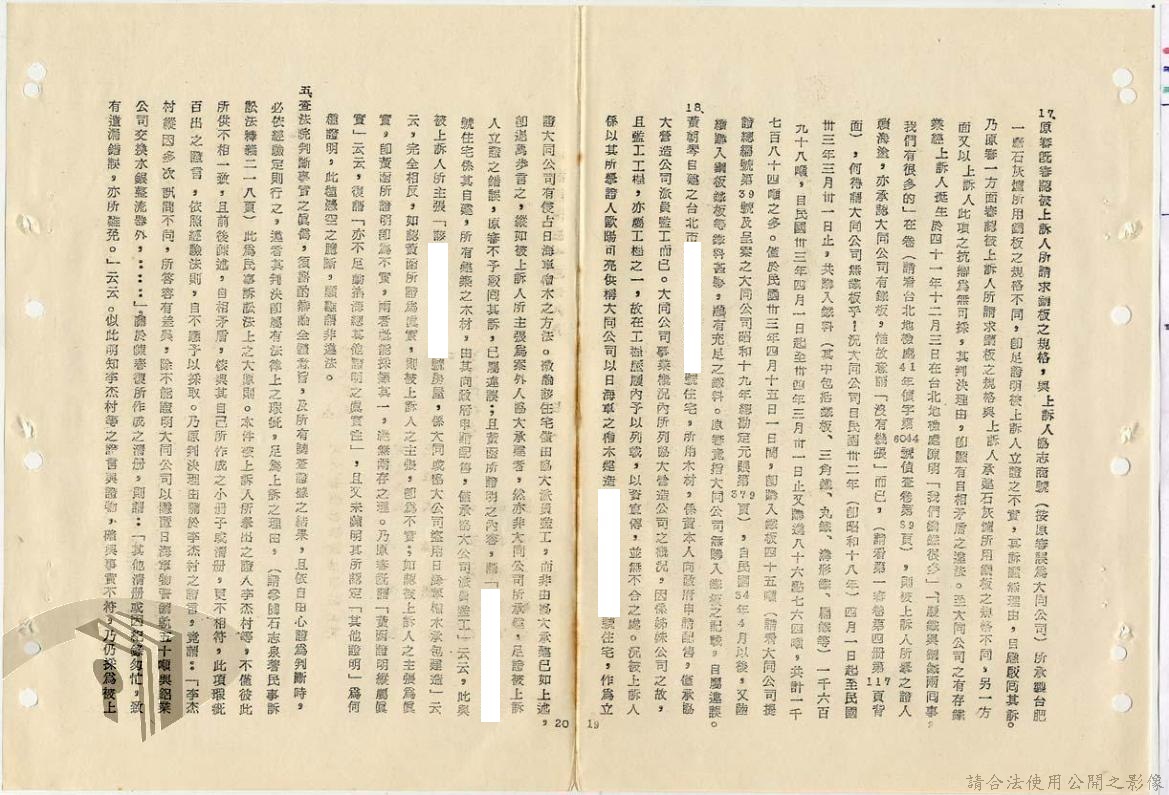 17、原審既審認被上訴人所請求鋼板之規格,與上訴人協志商號(按原審誤為大同公司)所承製台肥
一廠石灰爐所用鋼板之規格不同,卽足證明被上訴人立證之不實,其訴顯無理由,自應駁回其訴。
乃原審一方面審認被上訴人所請求鋼板之規格與上訴人承造石灰爐所用鋼板之規格不同,另一方
面又以上訴人此項之抗辯為無可採,其判決理由,卽顯有自相矛盾之違法。至大同公司之有存鐵
業經上訴人挺生於四十一年十二月三日在台北地檢處陳明「我們鋼鐵很多」「廢鐵與鋼鐵兩回事,
我們有很多的」在卷(請看台北地檢處41年偵字第6044號偵查卷第59頁),則被上訴人所舉之證人
顏海塗,亦承認大同公司有鐵板,惟故意謂「沒有幾張」而已,(請看第一審卷第四册第117頁背
面),何得謂大同公司無鐵板乎!況大同公司自民國卅二年(卽昭和十八年)四月一日起至民國
卅三年三月卅一日止,共購入鐵料(其中包括鐵板、三角鐵、丸鐵、溝形鐵、扁鐵等)一千六百
九十八噸,自民國卅三年四月一日起至卅四年三月卅一日止又購進八十六點七六四噸,共計一千
七百八十四噸之多。僅於民國卅三年四月十五日一日間,卽購入鐵板四十五噸(請看大同公司提
證總編號第39號及呈案之大同公司昭和十九年總勘定元帳第379頁),自民國34年4月以後,又陸
續購入鋼板鐵板等鐵料甚夥,確有充足之鐵料。原審竟指大同公司無購入鐵板之記載,自屬違誤。
18、黃朝琴自建之台北市 號住宅,所用木材,係黃本人向政府申請配售,僅承協
大營造公司派員監工而已。大同公司事業概況內所列協大營造公司之概況,因係姊妹公司之故,
且監工工程,亦屬工程之一,故在工程歷履內予以列載,以資宣傳,並無不合之處。況被上訴人
係以其所舉證人歐陽可亮供稱大同公司以日海軍之檜木建造 號住宅,作為立
19
20
證大同公司有侵占日海軍檜木之方法。徵諸該住宅僅由協大派員監工,而非由協大承建已如上述,
卽退萬步言之,縱如被上訴人所主張爲案外人協大承建者,然亦非大同公司所承建,足證被上訴
人立證之錯誤,原審不予駁回其訴,已屬違誤;且黃函所證明之內容,謂「
號住宅係其自建,所有建築之木材,由其向政府申請配售,僅承協大公司派員監工」云云,此與
被上訴人所主張「該 號房屋,係大同或協大公司盜用日海軍檜木承包建造」云
云,完全相反,如認黃函所證爲眞實,則被上訴人之主張,卽爲不實;如認被上訴人之主張爲眞
實,卽黃函所證明卽爲不實,兩者祇能採擇其一,絶無兩存之理。乃原審旣謂「黃函證明縱屬眞
實」云云,復謂「亦不足動搖海總其他證明之眞實性」,且又未闡明其所認定「其他證明」爲何
種證明,此種憑空之臆斷,顯難謂非違法。
五、查法院判斷事實之眞僞,須斟酌辯論全體意旨,及所有調查證據之結果,且依自由心證爲判斷時,
必依經驗定則行之,違者其判決卽屬有法律上之瑕疵,足爲上訴之理由,(請參閱石志泉著民事訴
訟法釋義二一八頁)此爲民事訴訟法上之大原則。本件被上訴人所舉出之證人李杰村等,不僅彼此
所供不相一致,且前後陳述,自相矛盾,核與其自己所作成之小册子或清册,更不相符,此項瑕疵
百出之證言,依照經驗法則,自不應予以採取。乃原判決理由關於李杰村之證言,竟謂:「李杰
村縱因多次訊問不同,所答容有差異,除不能證明大同公司以攤置日海軍物資鋼軌五十噸與鋁業
公司交換水銀整流器外,‥‥‥」關於顏春復所作成之清册,則謂:「其他清册或因起錄匆忙,致
有遺漏錯誤,亦所難免。」云云。似此明知李杰村等之證言與證物,確與事實不符,乃仍採爲被上
請合法使用公開之影像